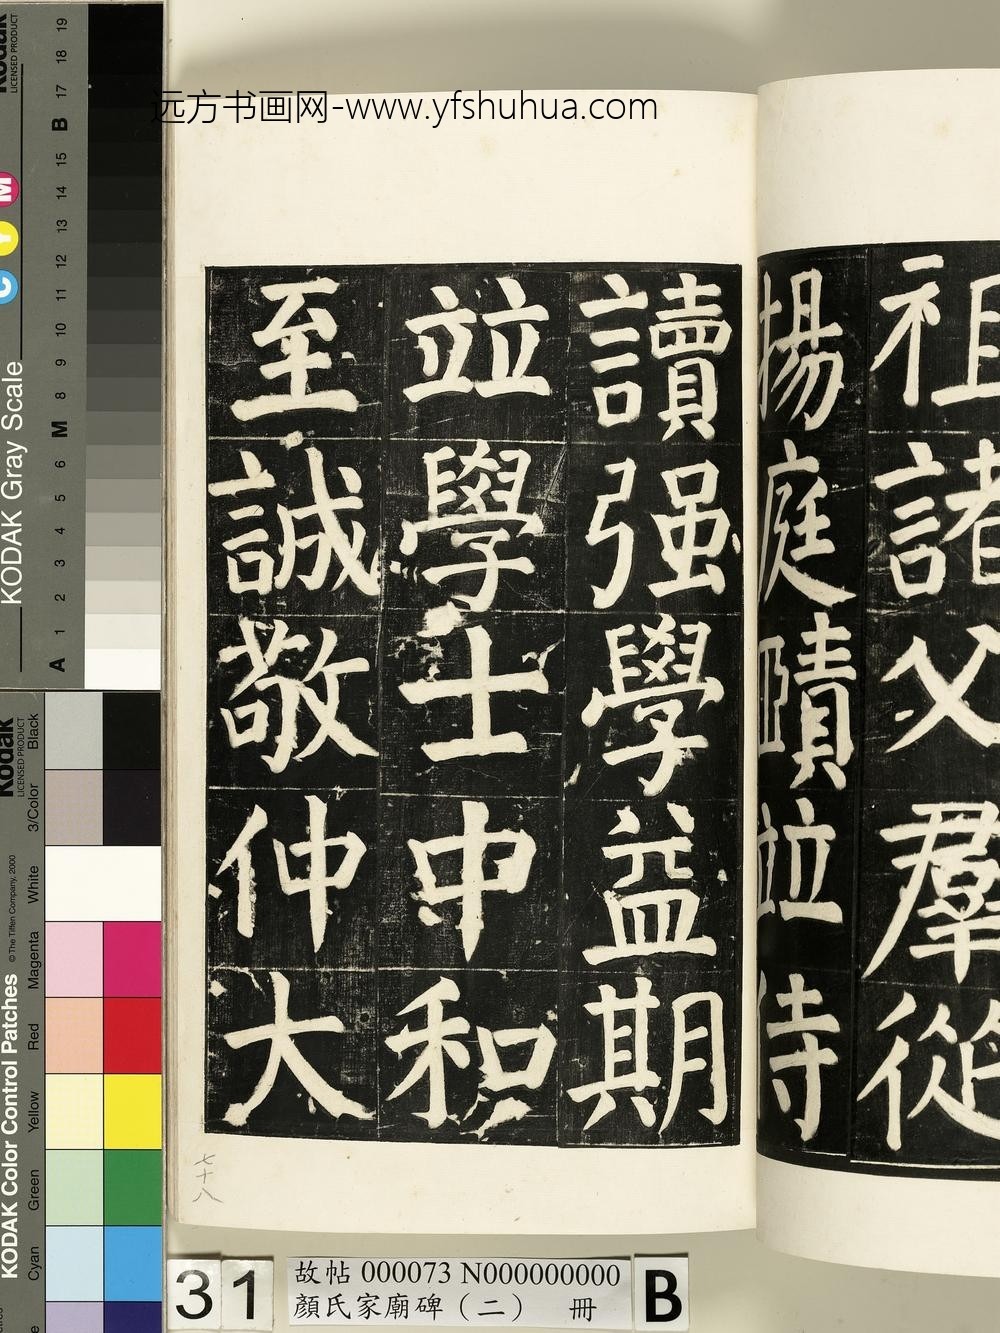 远方书画网-www.yfshuhua.com
祖諸父羣從
揚庭賾並侍
讀强學益期
並學士中和
至誠敬仲大
七十八
31
故帖 000073 N000000000
顏氏家廟碑（二） 冊
B
KODAK Gray Scale
Kodak
LICENSED PRODUCT
C Y M
A 1 2 3 4 5 6 M 8 9 10 11 12 13 14 15 B 17 18 19
KODAK Color Control Patches
© The Tiffen Company, 2000
Kodak
LICENSED PRODUCT
Cyan Green Yellow Red Magenta White 3/Color Black